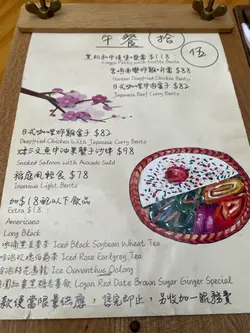 午餐 拾伍
$118
Wagyu Patty with Waffle Bento
$88
Nanban Deepfried Chicken Bento
日式咖哩牛肉盒子 $82
Japanese Beef Curry Bento
日式咖哩炸雞盒子 $82
Deepfried Chicken With Japanese Curry Bento
煙三文魚牛油果蟹子沙律 $98
Smoked Salmon with Avocado Salad
稻庭風輕食 $78
Inaniwa Light Bento
加$18配以下飲品
Extra $18
Americano
Long Black
Iced Black Soybean Wheat Tea
Iced Rose Earlgrey Tea
Ice Osmanthus Oolong
Logan Red Date Brown Sugar Ginger Special
款便當限量供應，售完即止，另收加一服務費